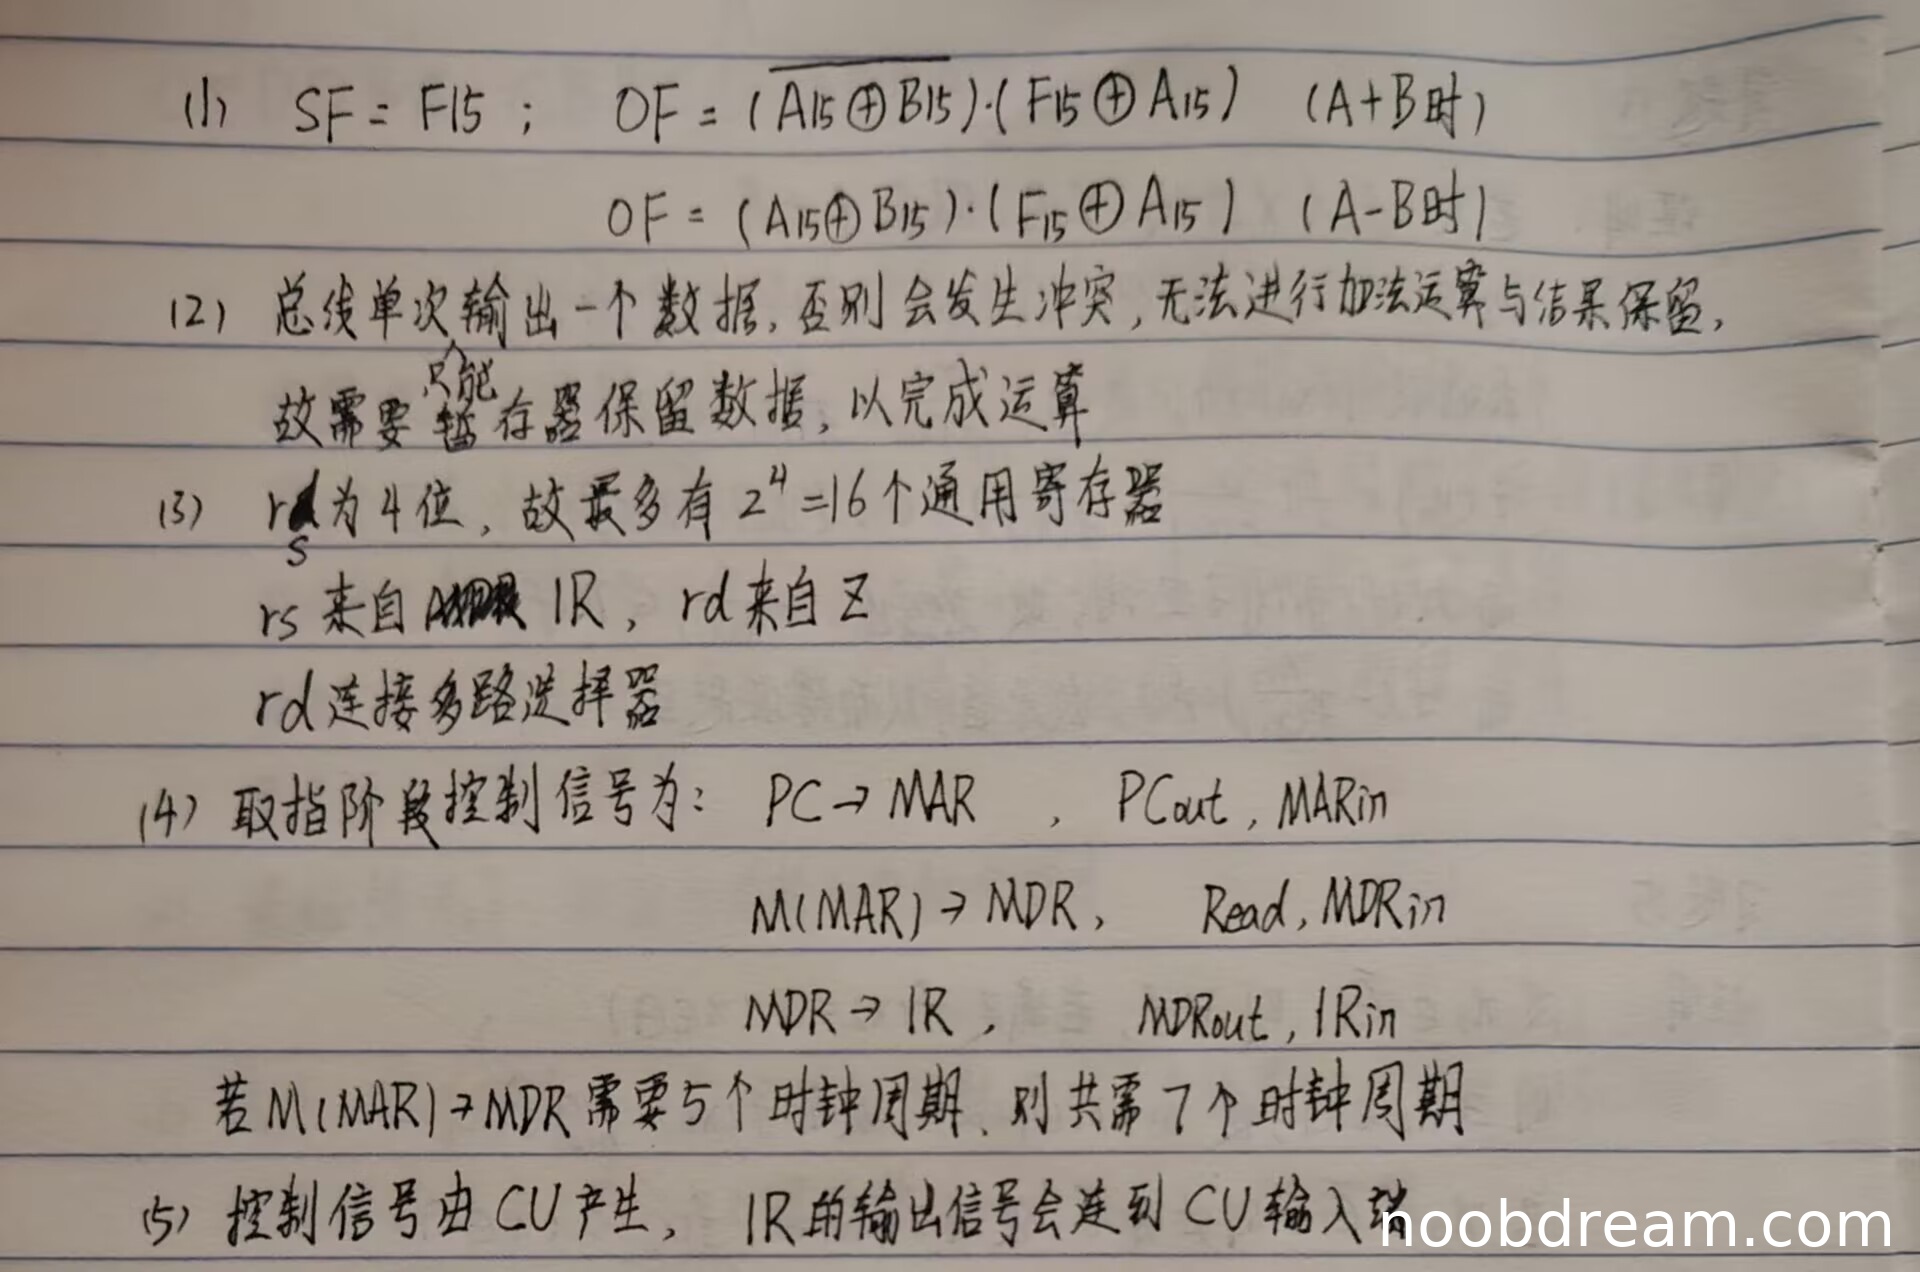 (1) SF = F15 ; OF = (\overline{A15⊕B15})·(F15⊕A15) (A+B时)
OF = (A15⊕B15)·(F15⊕A15) (A-B时)
(2) 总线单次只能输出一个数据,否则会发生冲突,无法进行加法运算与结果保留,
故需要暂存器保留数据,以完成运算
(3) rs为4位,故最多有2^4=16个通用寄存器
rs来自 IR, rd来自Z
rd连接多路选择器
(4) 取指阶段控制信号为: PC→MAR , PCout, MARin
M(MAR)→MDR, Read, MDRin
MDR→IR, MDRout, IRin
若M(MAR)→MDR需要5个时钟周期、则共需7个时钟周期
(5) 控制信号由CU产生, IR的输出信号会连到CU输入端
noobdream.com